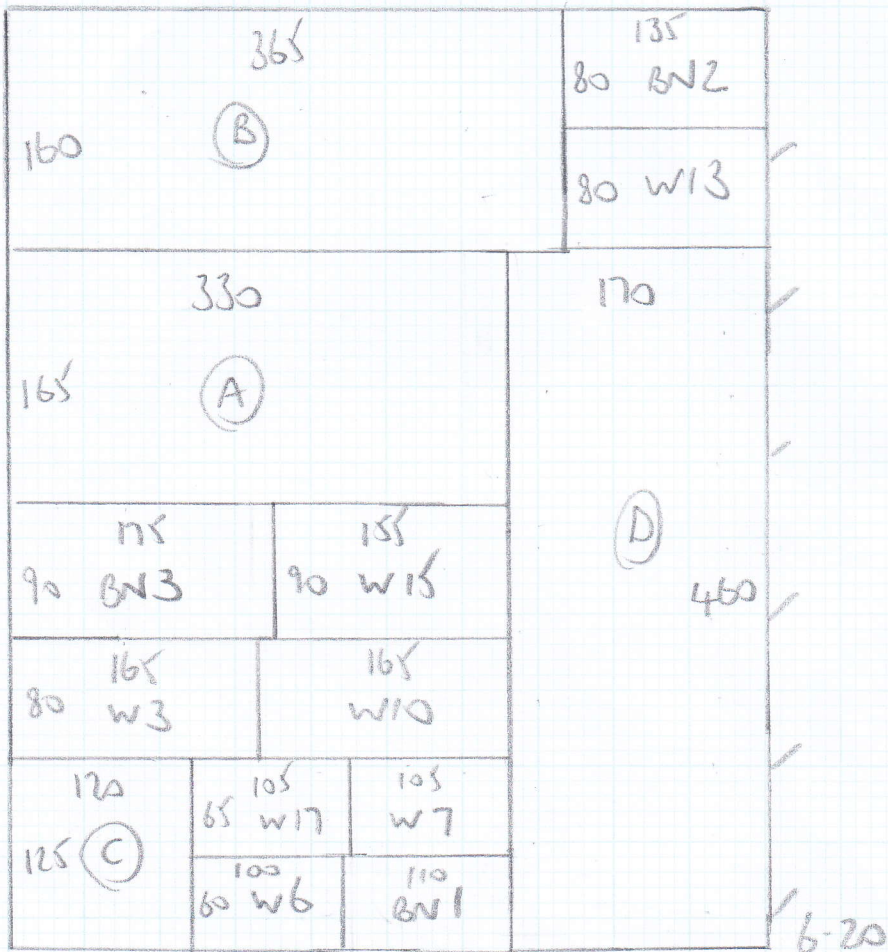 365
160
B
135
80 BN2
80 W13
330
165
A
170
D
460
175
90 BN3
155
90 W15
165
80 W3
165
W10
120
125 C
105
65 W17
105
W7
100
60 W6
110
BN1
6-20